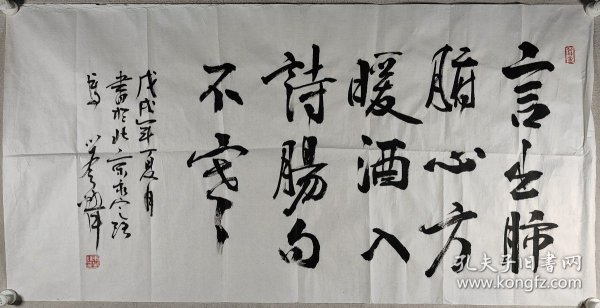 言出肺
腑心方
暖酒入
詩腸句
不寒
戊戌年夏月
書於北京
孔夫子旧书网
www.kongfz.com